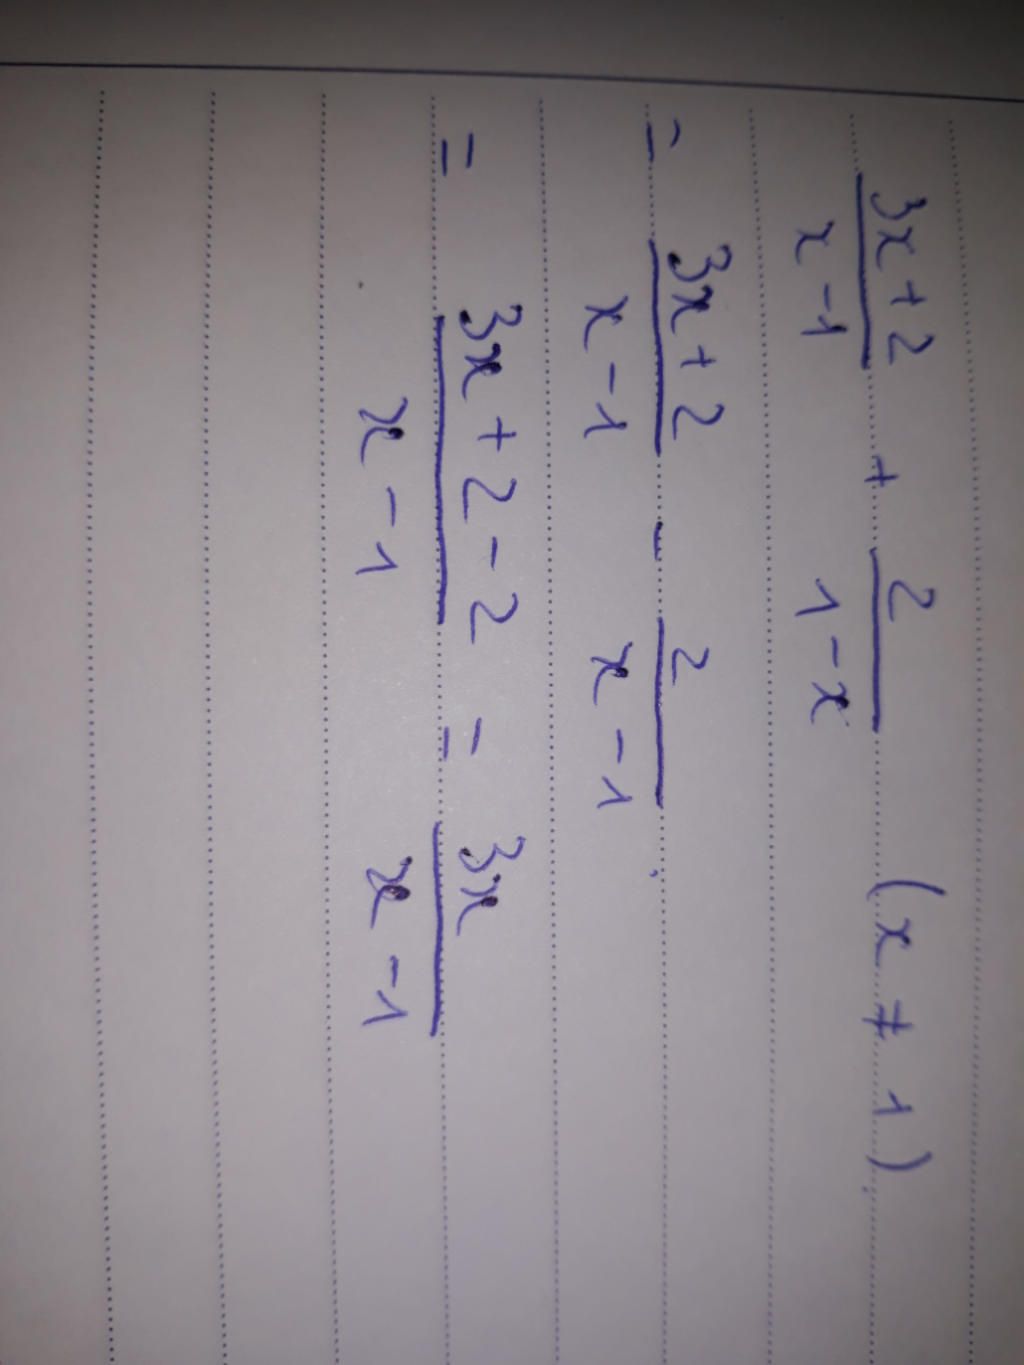 (3x+2)/(x-1) + 2/(1-x) (x ≠ 1)
= (3x+2)/(x-1) - 2/(x-1)
= (3x+2-2)/(x-1) = 3x/(x-1)